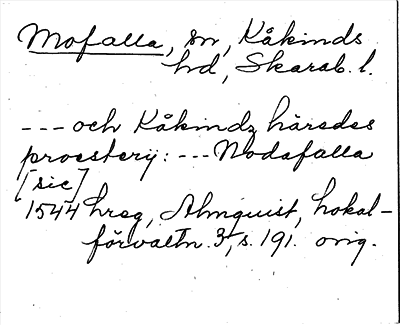 Mofalla, sn, Kåkinds
hd, Skarab. l.
--- och Kåkindz härades
proesterij: --- Modafalla
[sic]
1544 hreg, Almquist, Lokal-
förvaltn. 3, s. 191. orig.